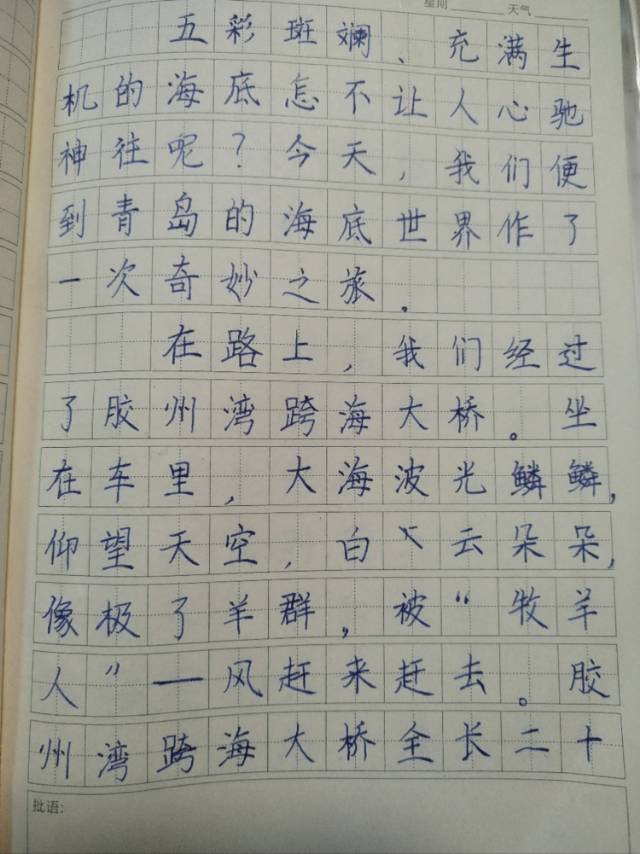 星期 天气
五彩斑斓、充满生
机的海底怎不让人心驰
神往呢？今天，我们便
到青岛的海底世界作了
一次奇妙之旅.
在路上，我们经过
了胶州湾跨海大桥。坐
在车里，大海波光鳞鳞，
仰望天空，白云朵朵，
像极了羊群，被“牧羊
人”—风赶来赶去。胶
州湾跨海大桥全长二十
批语：